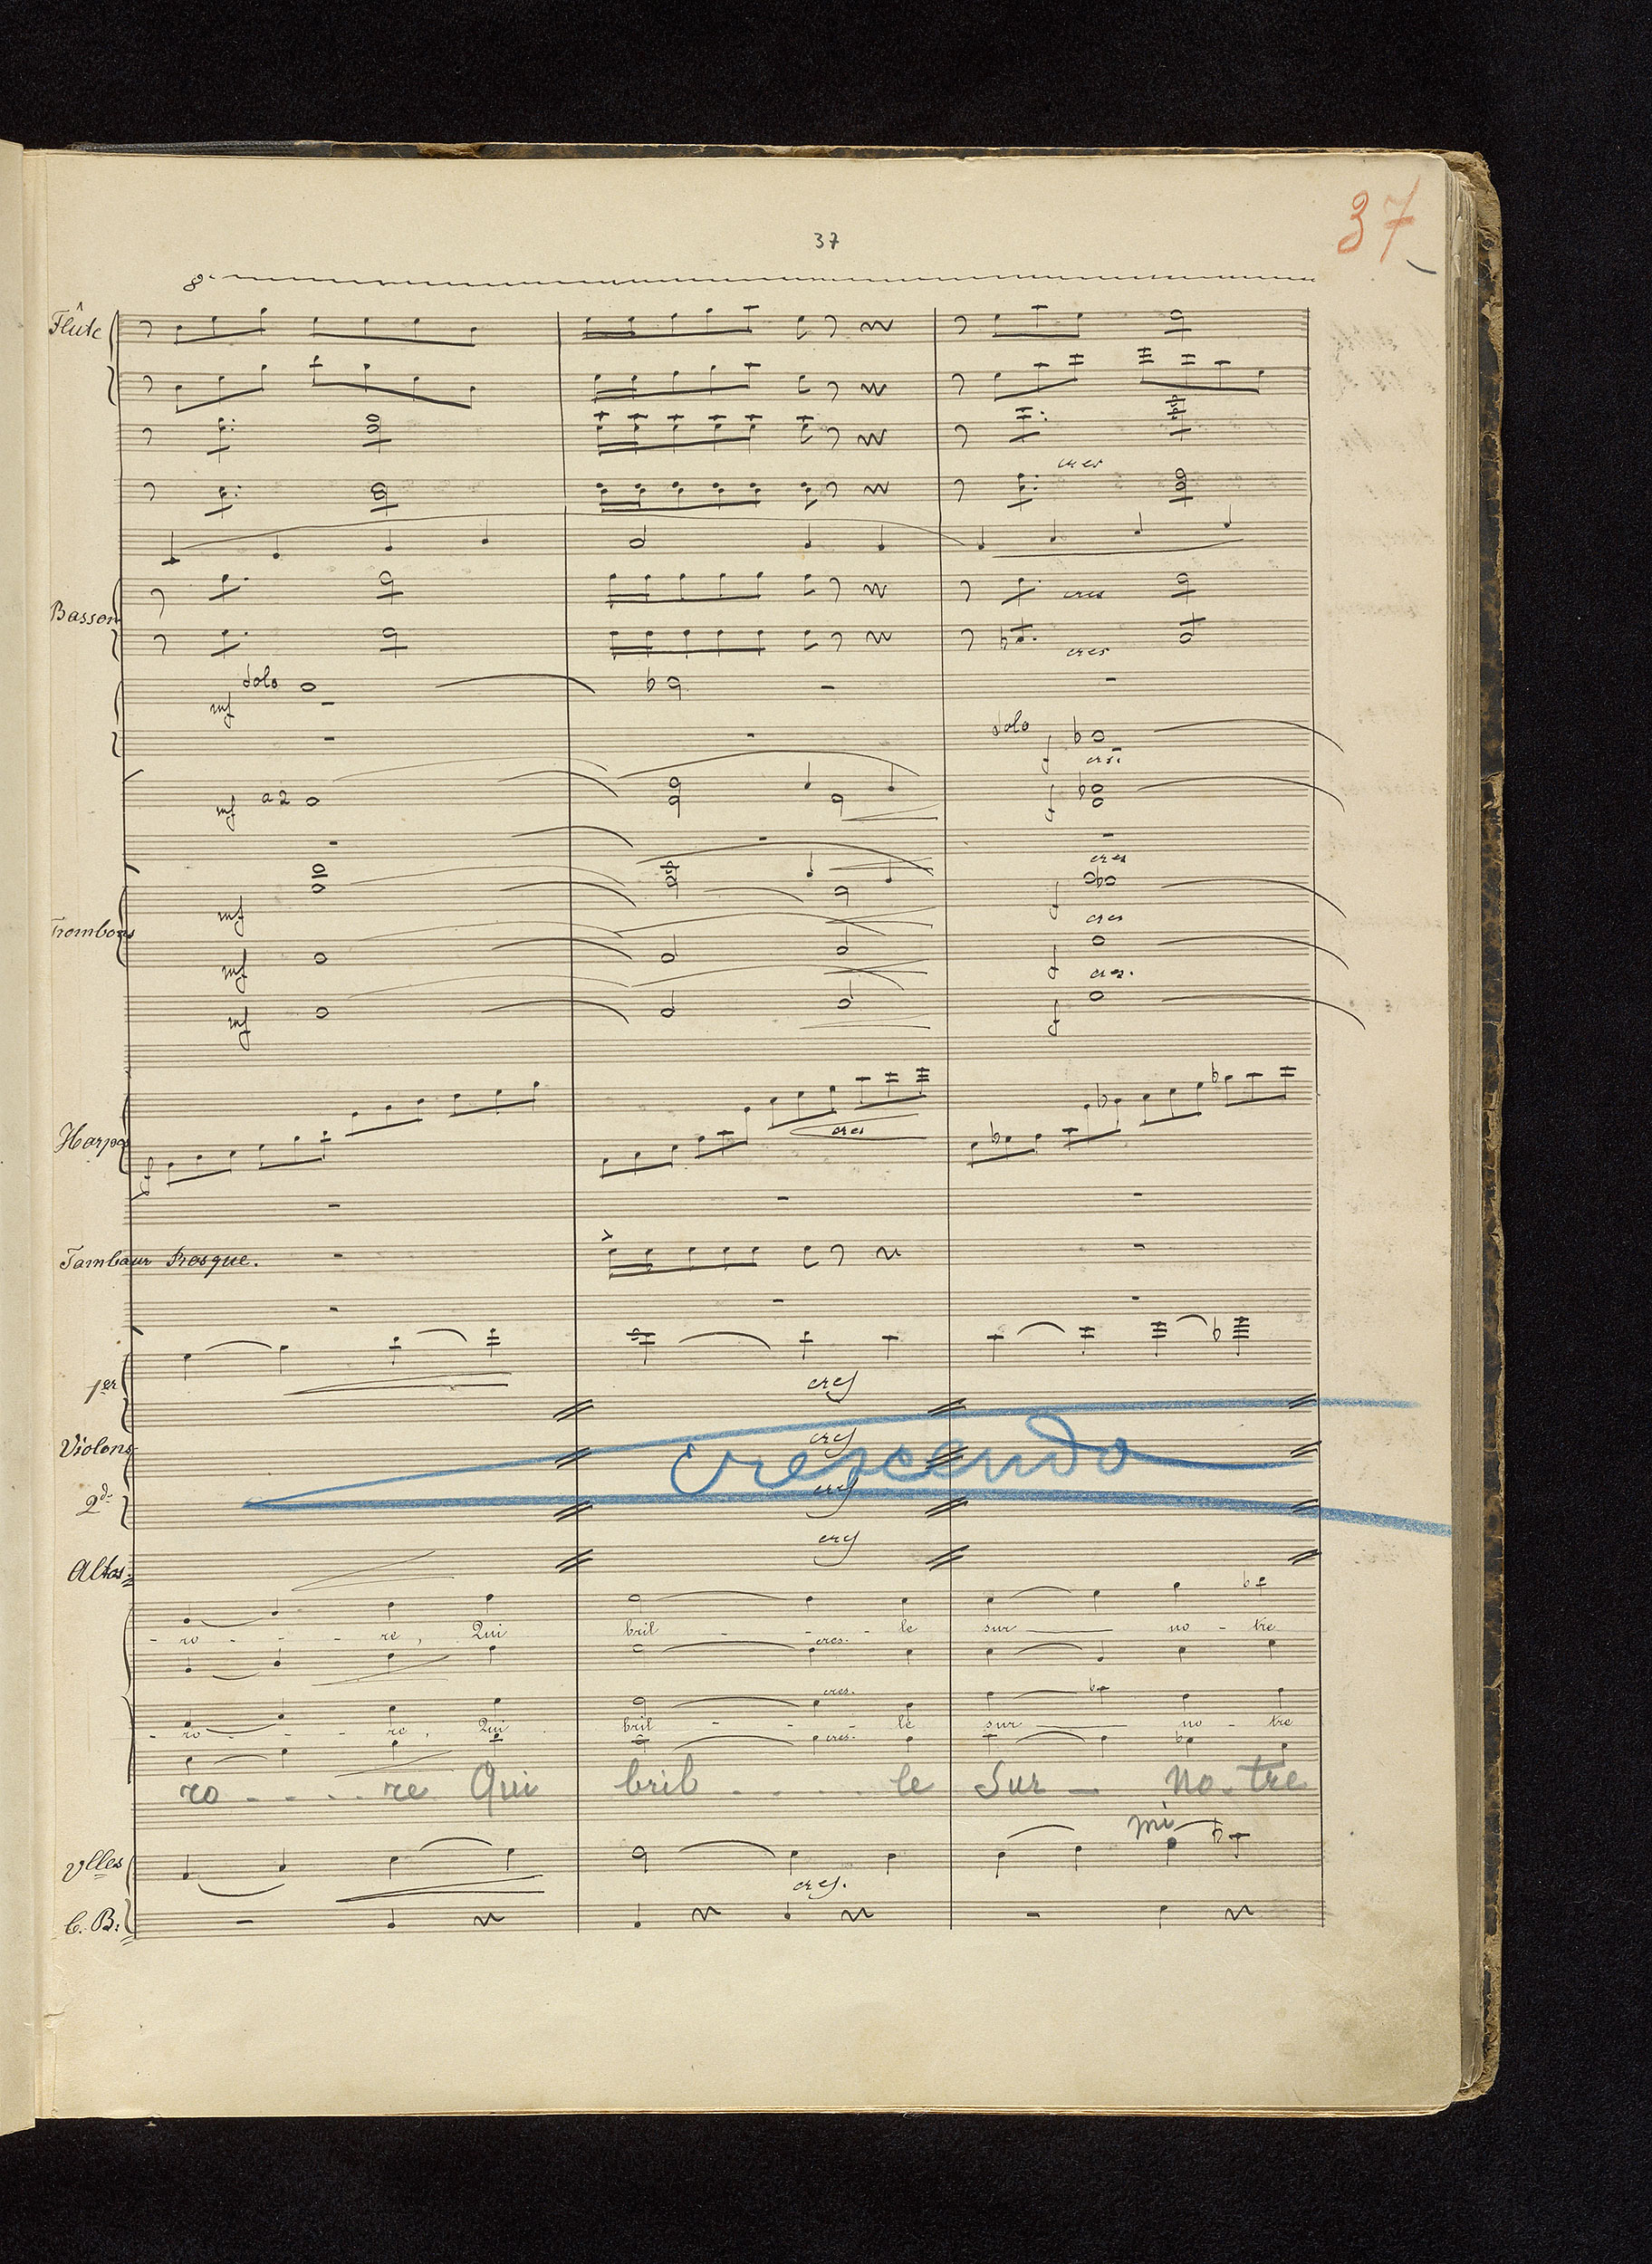 37
37
8ª
Flûte
cres
Basson
cres
cres
Solo
mf
solo
f
cres.
mf
a 2
f
cres
mf
f
cres
Trombons
mf
f
cres.
mf
f
Harpes
f
cres
Tambour Basque.
1er
cres
Violons
cres
crescendo
2ds
cres
cres
Altos.
- ro - - - re, Qui bril - - - le sur no - tre
cres.
cres.
- ro - - - re, Qui bril - - - le sur no - tre
cres.
ro - - - - re Qui bril - - - - le Sur - no - tre
mi
vlles
cres.
C. B: